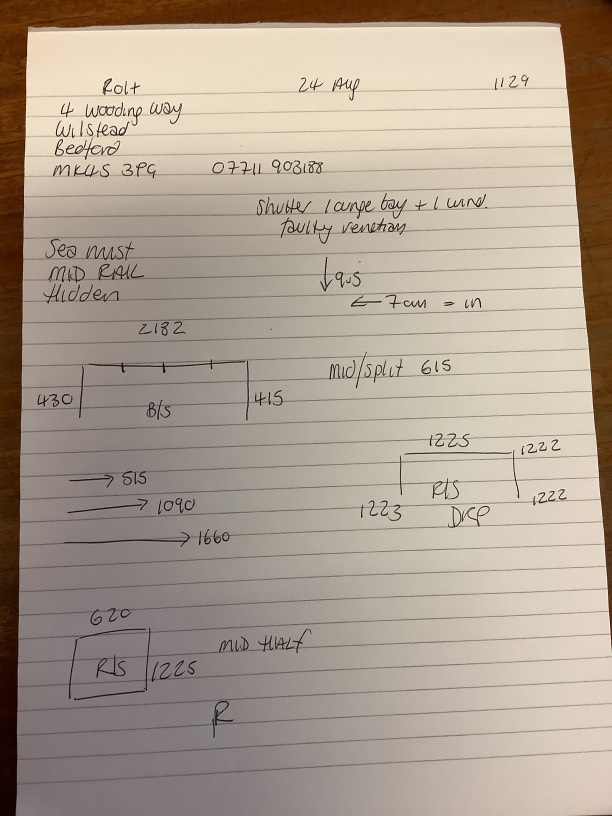 Rolt 24 Aug 1129
4 Wooding Way
Wilstead
Bedford
MK45 3PG 07711 903188
Shutter lounge bay + 1 wind.
faulty venetian
Sea mist
MID RAIL
Hidden
↓ 905
← 7cm = in
2182
Mid/split 615
430 B/S 415
1225 1222
→ 515
→ 1090
→ 1660
R/S
1223 DKP 1222
620
MID HALF
R/S 1225
R